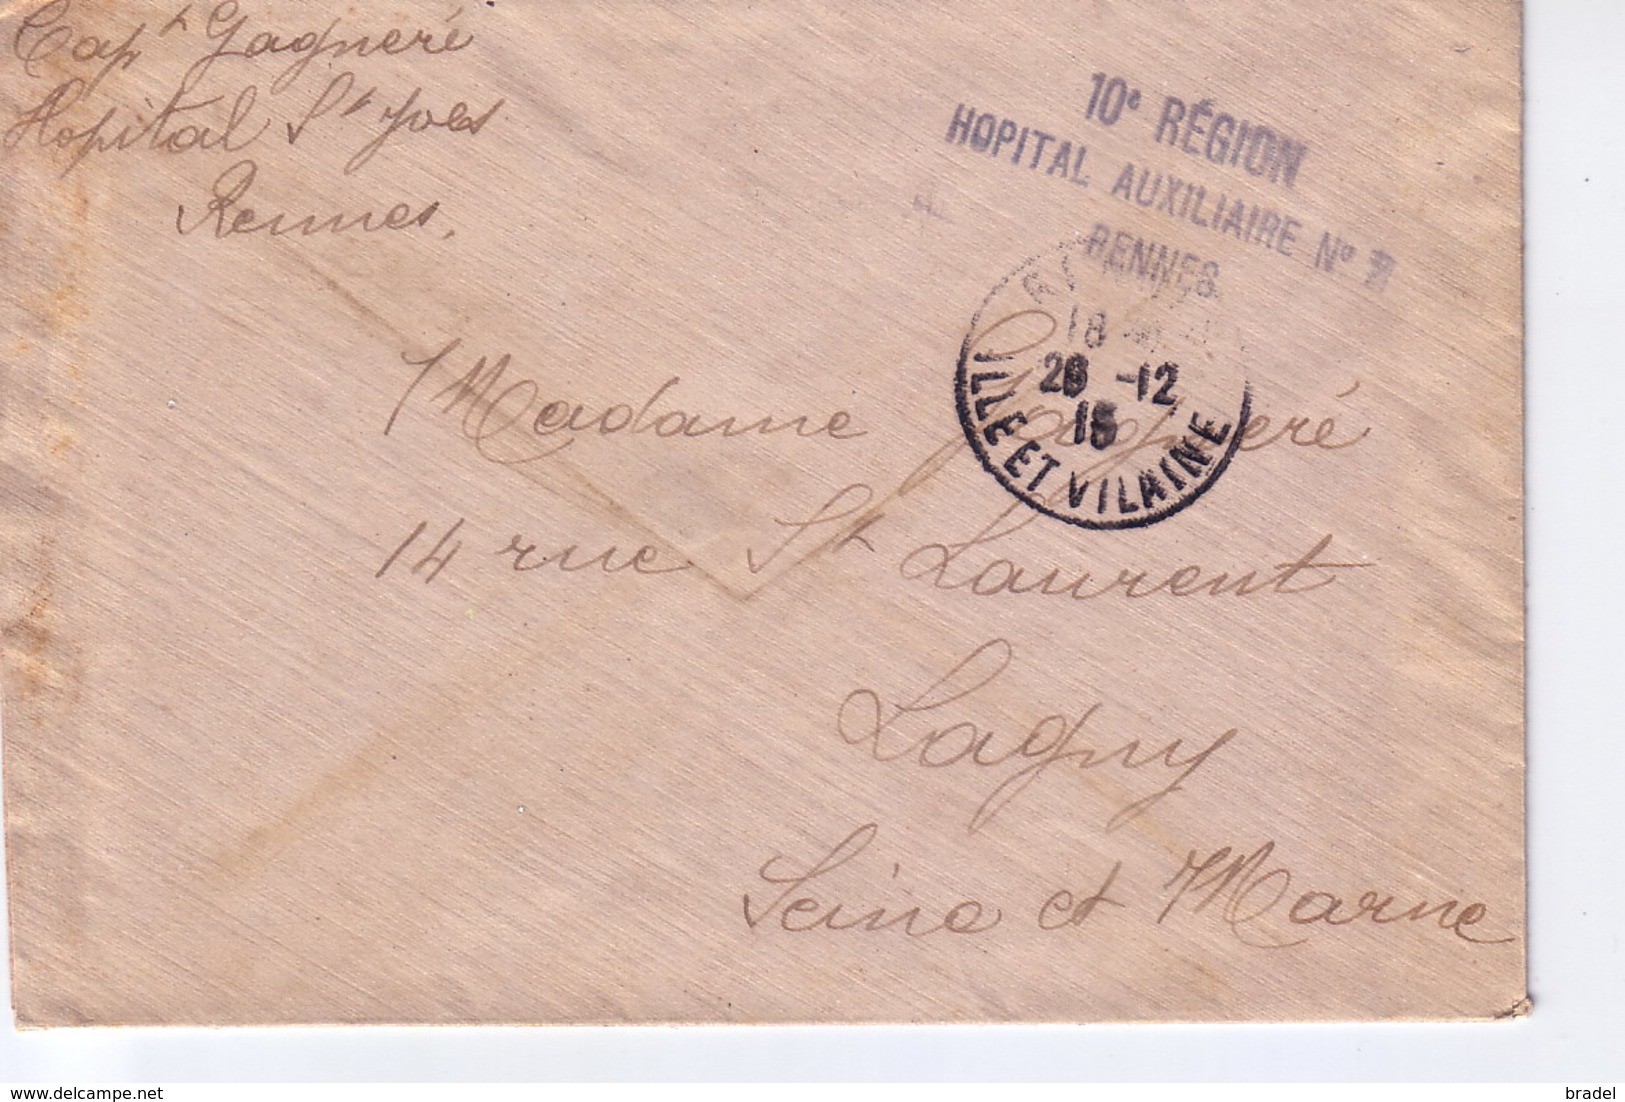 Cap^t Gagneré
Hopital S^t Yves
Rennes.
10e RÉGION
HOPITAL AUXILIAIRE No
RENNES
18
28 -12
15
ILLE ET VILAINE
Madame Gagneré
14 rue St Laurent
Lagny
Seine et Marne
www.delcampe.net
bradel